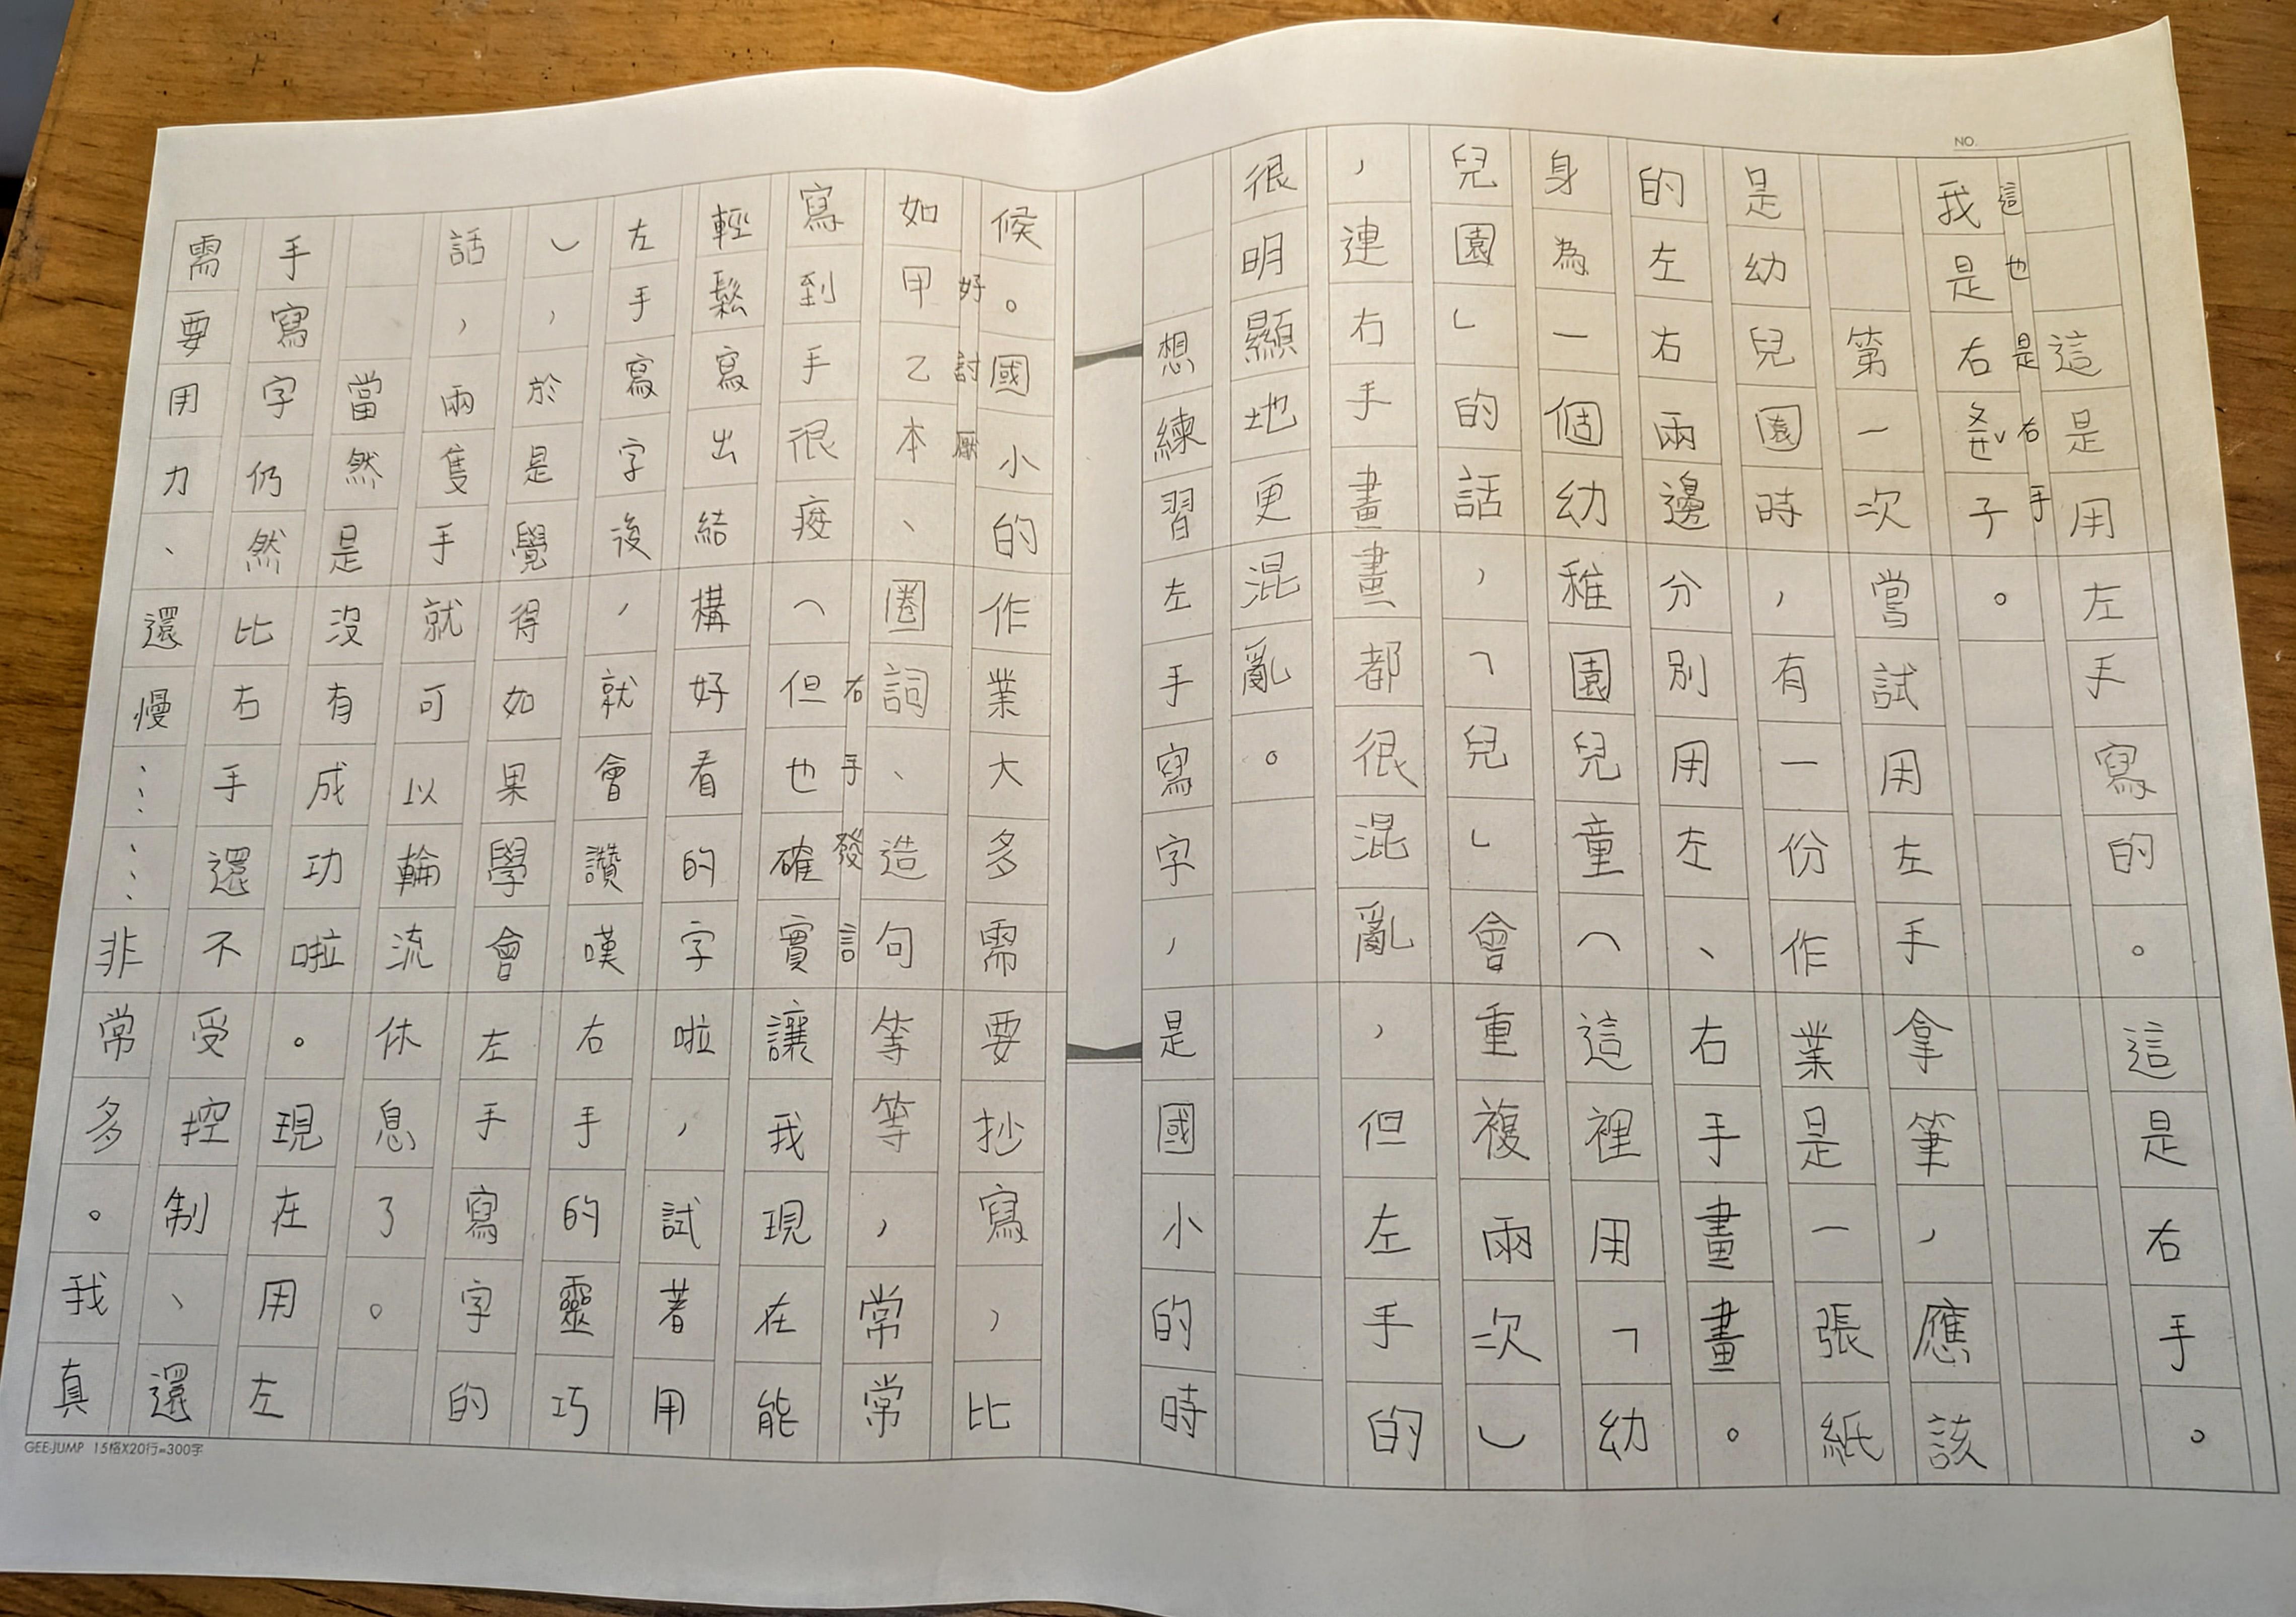 NO.
這是用左手寫的。這是右手。
這也是右手
我是右ㄆㄧㄝˇ子。
第一次嘗試用左手拿筆，應該
是幼兒園時，有一份作業是一張紙
的左右兩邊分別用左、右手畫畫。
身為一個幼稚園兒童（這裡用「幼
兒園」的話，「兒」會重複兩次）
，連右手畫畫都很混亂，但左手的
很明顯地更混亂。
想練習左手寫字，是國小的時
候。國小的作業大多需要抄寫，比
好討厭
如甲乙本、圈詞、造句等等，常常
右手發言
寫到手很痠（但也確實讓我現在能
輕鬆寫出結構好看的字啦，試著用
左手寫字後，就會讚嘆右手的靈巧
），於是覺得如果學會左手寫字的
話，兩隻手就可以輪流休息了。
當然是沒有成功啦。現在用左
手寫字仍然比右手還不受控制、還
需要用力、還慢……非常多。我真
GEE-JUMP 15格X20行=300字